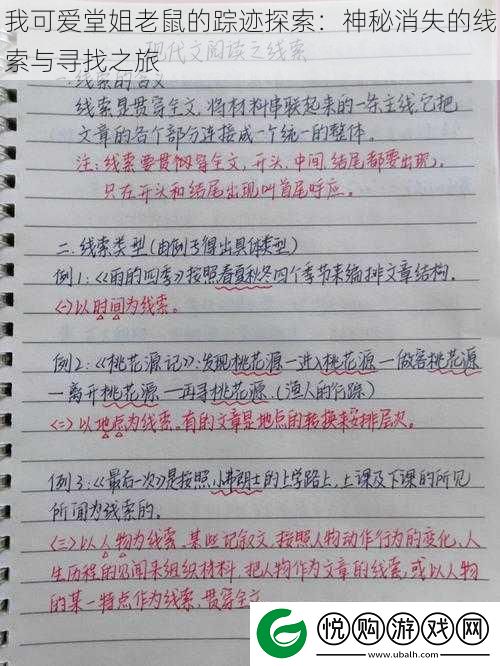 我可爱堂姐老鼠的踪迹探索：神秘消失的线
索与寻找之旅
现代文阅读之线索
一.线索的含义
线索是贯穿全文,将材料串联起来的一条主线,它把
文章的各个部分连接成一个统一的整体。
注:线索要贯穿全文,开头、中间、结尾都要出现,
只在开头和结尾出现叫首尾呼应。
二.线索类型(由例子得出具体类型)
例1:《雨的四季》按照春夏秋冬四个季节来编排文章结构。
(一)以时间为线索。
例2:《桃花源记》:发现桃花源—进入桃花源—做客桃花源
—离开桃花源—再寻桃花源(渔人的行踪)
(二)以地点为线索,有的文章是地点的转换来安排层次。
例3:《最后一次》是按照小弗朗士的上学路上,上课及下课的所见
所闻为线索的。
(三)以人物为线索,某些记叙文,按照人物动作行为的变化,人
生历程的见闻来组织材料,把人物作为文章的线索,或以人物
的某一特点作为线索,贯穿全文
悦购游戏网
www.ubalh.com